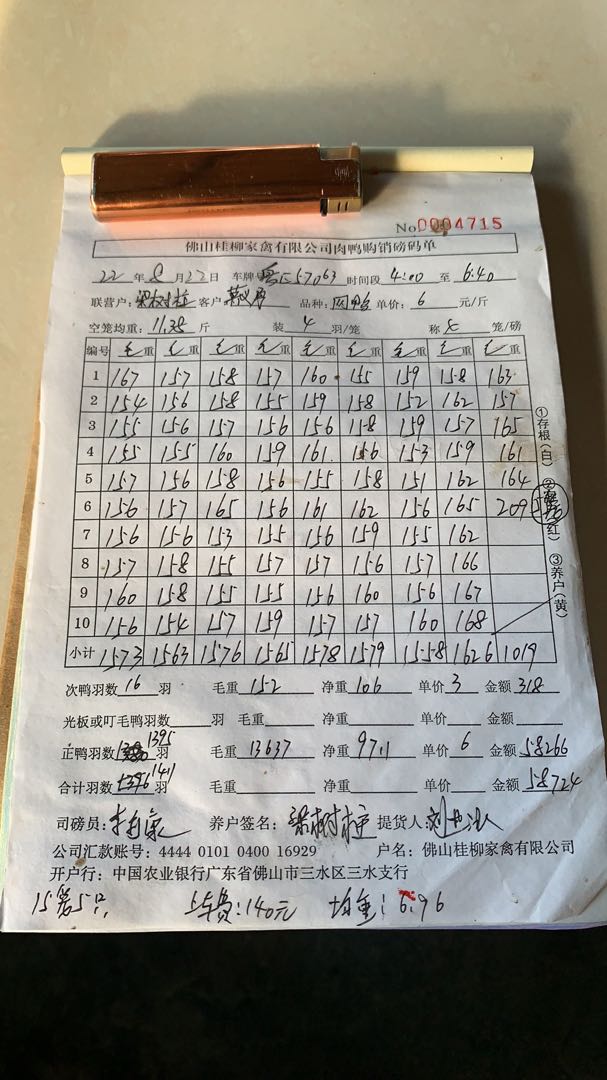 No 0004715
佛山桂柳家禽有限公司肉鸭购销磅码单
22 年 8 月 22 日 车牌号 57063 时间段 4:00 至 6:40
联营户: 梁树桂 客户 品种: 单价: 6 元/斤
空笼均重: 11.38 斤 装 4 羽/笼 称 8 笼/磅
编号 毛重 毛重 毛重 毛重 毛重 毛重 毛重 毛重 毛重
1 167 157 158 157 160 155 159 158 163
2 154 156 158 155 159 158 152 162 157
3 155 156 157 156 156 158 159 157 165
4 155 155 160 159 161 156 153 159 161
5 157 156 158 156 155 158 151 162 164
6 156 157 165 156 161 162 156 165 209
7 156 156 153 155 156 159 155 162
8 157 158 155 157 157 156 157 166
9 160 158 155 155 156 160 156 167
10 156 154 157 159 157 157 160 168
小计 1573 1563 1576 1565 1578 1579 1558 1626 1019
①存根(白) ② 红) ③养户(黄)
次鸭羽数 16 羽 毛重 152 净重 106 单价 3 金额 318
光板或叮毛鸭羽数 羽 毛重 净重 单价 金额
正鸭羽数 1395 羽 毛重 13637 净重 9711 单价 6 金额 58266
合计羽数 1411 羽 毛重 净重 单价 金额 58724
司磅员: 养户签名: 梁树桂 提货人:
公司汇款账号: 4444 0101 0400 16929 户名: 佛山桂柳家禽有限公司
开户行: 中国农业银行广东省佛山市三水区三水支行
15笼5只 上车费:140元 均重:6.96